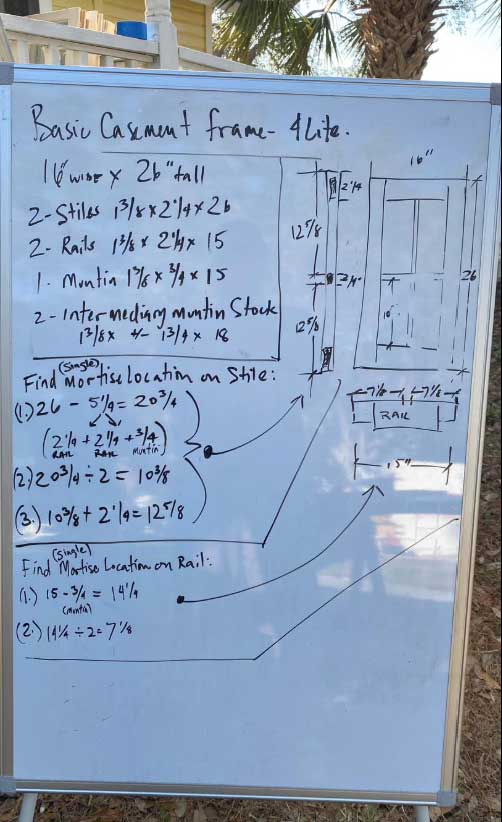 Basic Casement frame - 4 Lite.
16" wide x 26" tall
2 - Stiles 1 3/8 x 2 1/4 x 26
2 - Rails 1 3/8 x 2 1/4 x 15
1 - Muntin 1 3/8 x 3/4 x 15
2 - Intermediary muntin Stock
1 3/8 x +/- 1 3/4 x 18
Find (single) Mortise Location on Stile:
(1.) 26 - 5 1/4 = 20 3/4
(2 1/4 + 2 1/4 + 3/4)
RAIL RAIL muntin
(2.) 20 3/4 ÷ 2 = 10 3/8
(3.) 10 3/8 + 2 1/4 = 12 5/8
Find (single) Mortise Location on Rail:
(1.) 15 - 3/4 = 14 1/4
(muntin)
(2.) 14 1/4 ÷ 2 = 7 1/8
2 1/4
12 5/8
3/4"
12 5/8
16"
26
7 1/8 7 1/8
RAIL
15"